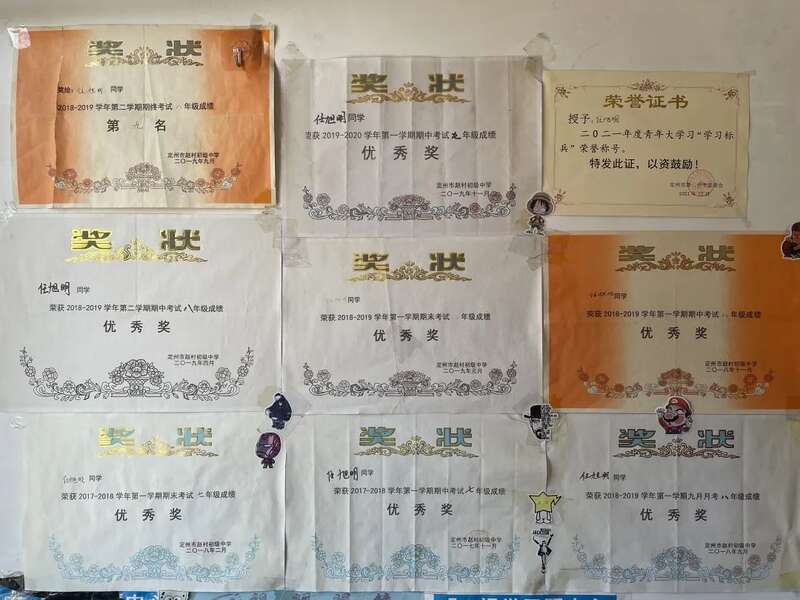 奖状
奖给: 同学
2018-2019学年第二学期期终考试八年级成绩
第九名
定州市赵村初级中学
二〇一九年九月
奖状
任旭明同学
荣获2019-2020学年第一学期期中考试九年级成绩
优秀奖
定州市赵村初级中学
二〇一九年十一月
荣誉证书
授予:任旭明
二〇二一年度青年大学习“学习标
兵”荣誉称号。
特发此证,以资鼓励!
奖状
任旭明同学
荣获2018-2019学年第二学期期中考试八年级成绩
优秀奖
定州市赵村初级中学
二〇一九年四月
奖状
同学
荣获2018-2019学年第一学期期末考试 年级成绩
优秀奖
定州市赵村初级中学
二〇一九年元月
奖状
任旭明同学
荣获2018-2019学年第一学期期中考试 年级成绩
优秀奖
定州市赵村初级中学
二〇一八年十一月
奖状
任旭明同学
荣获2017-2018学年第一学期期末考试七年级成绩
优秀奖
定州市赵村初级中学
二〇一八年二月
奖状
任旭明同学
荣获2017-2018学年第一学期期中考试七年级成绩
优秀奖
定州市赵村初级中学
二〇一七年十一月
奖状
任旭明同学
荣获2018-2019学年第一学期九月月考八年级成绩
优秀奖
定州市赵村初级中学
二〇一八年九月